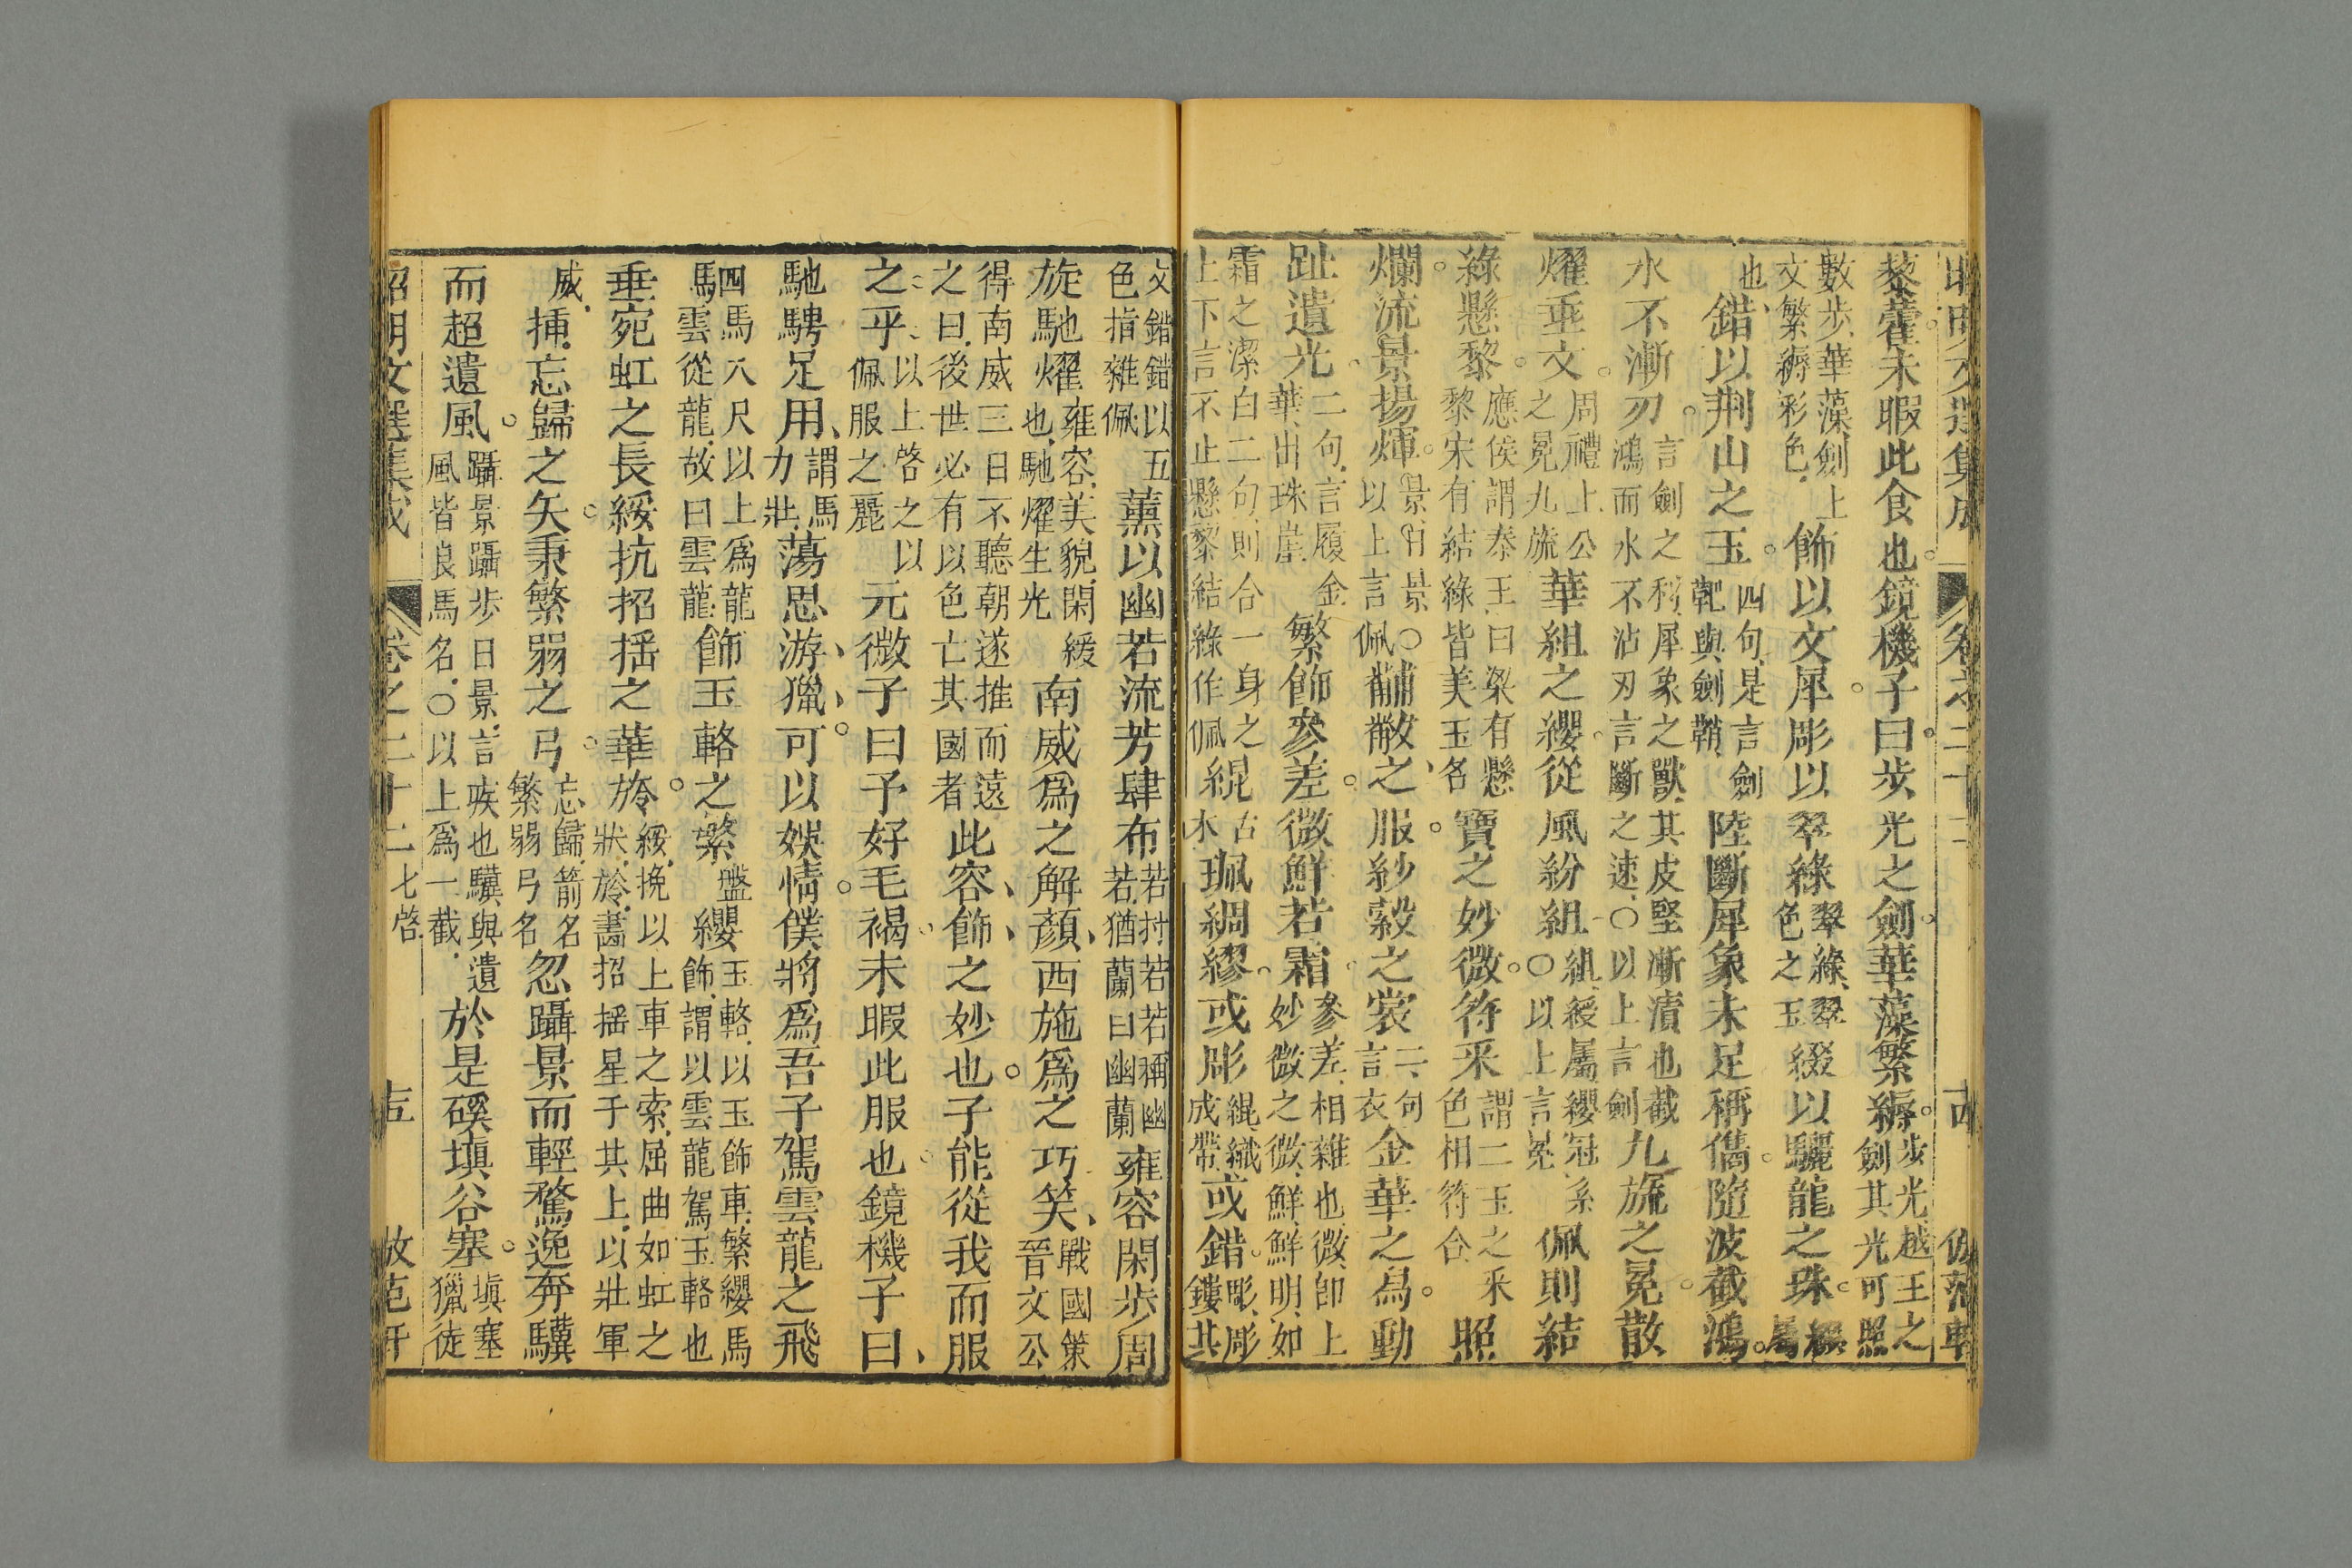 昭明文選集成 卷之二十二
藜藿未暇此食也鏡機子曰步光之劍華藻繁縟步光越王之劍其光可照
數步華藻劍上文繁縟彩色飾以文犀彫以翠綠翠綠翠色之玉綴以驪龍之珠綴屬
也錯以荆山之玉四句是言劍靶與劍鞘陸斷犀象未足稱儁隨波截鴻
水不漸刃言劍之利犀象之獸其皮堅漸漬也截鴻而水不沾刃言斷之速○以上言劍九旒之冕散
燿垂文周禮上公之冕九旒華組之纓從風紛組組綬屬纓冠系○以上言冕佩則結
綠懸黎應侯謂秦王曰梁有懸黎宋有結綠皆美玉名寶之妙微符采謂二玉之釆色相符合照
爛流景揚煇景日景○以上言佩黼黻之服紗縠之裳二句言衣金華之舄動
趾遺光二句言履金華出珠崖繁飾參差微鮮若霜參差相雜也微卽上妙微之微鮮鮮明如
霜之潔白二句則合一身之上下言不止懸黎結綠作佩緄古本珮綢繆或彫緄織成帶或錯彫彫鏤其
文錯錯以五色指雜佩薰以幽若流芳肆布若杜若若稱幽若猶蘭曰幽蘭雍容閑步周
旋馳燿雍容美貌閑緩也馳燿生光南威爲之解顏西施爲之巧笑戰國策晉文公
得南威三日不聽朝遂推而遠之曰後世必有以色亡其國者此容飾之妙也子能從我而服
之乎以上啓之以佩服之麗元微子曰予好毛褐未暇此服也鏡機子曰
馳騁足用謂馬力壯蕩思游獵可以娛情僕將爲吾子駕雲龍之飛
駟四馬八尺以上爲龍雲從龍故曰雲龍飾玉輅之繁盤纓玉輅以玉飾車繁纓馬飾謂以雲龍駕玉輅也
垂宛虹之長綏抗招搖之華旍綏挽以上車之索屈曲如虹之狀旍畵招搖星于其上以壯軍
威揷忘歸之矢秉繁弱之弓忘歸箭名繁弱弓名忽躡景而輕騖逸奔驥
而超遺風躡景躡步日景言疾也驥與遺風皆良馬名○以上爲一截於是磎塡谷塞塡塞獵徒
昭明文選集成 卷之二十二七啓